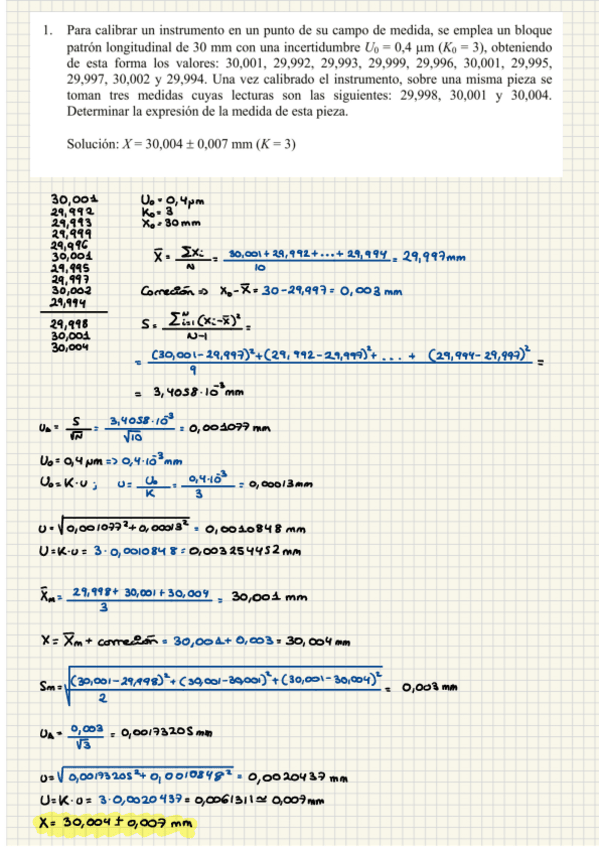 1. Para calibrar un instrumento en un punto de su campo de medida, se emplea un bloque
patrón longitudinal de 30 mm con una incertidumbre U₀ = 0,4 µm (K₀ = 3), obteniendo
de esta forma los valores: 30,001, 29,992, 29,993, 29,999, 29,996, 30,001, 29,995,
29,997, 30,002 y 29,994. Una vez calibrado el instrumento, sobre una misma pieza se
toman tres medidas cuyas lecturas son las siguientes: 29,998, 30,001 y 30,004.
Determinar la expresión de la medida de esta pieza.
Solución: X = 30,004 ± 0,007 mm (K = 3)
30,001
29,992
29,993
29,999
29,996
30,001
29,995
29,997
30,002
29,994
29,998
30,001
30,004
U₀ = 0,4µm
K₀ = 3
X₀ = 30mm
X̄ = ΣXi / N = 30,001 + 29,992 + ... + 29,994 / 10 = 29,997mm
Corrección => X₀ - X̄ = 30 - 29,997 = 0,003 mm
S = Σᵢ₌₁ᴺ (xᵢ - x̄)² / N-1 =
= (30,001 - 29,997)² + (29,992 - 29,997)² + ... + (29,994 - 29,997)² / 9 =
= 3,4058·10⁻³ mm
u_A = S / √N = 3,4058·10⁻³ / √10 = 0,001077 mm
U₀ = 0,4 µm => 0,4·10⁻³ mm
U₀ = K·u ; u = U₀ / K = 0,4·10⁻³ / 3 = 0,00013mm
u = √0,001077² + 0,00013² = 0,0010848 mm
U = K·u = 3·0,0010848 = 0,003254452 mm
X̄m = 29,998 + 30,001 + 30,004 / 3 = 30,001 mm
X = X̄m + corrección = 30,001 + 0,003 = 30,004 mm
Sm = √(30,001 - 29,998)² + (30,001 - 30,001)² + (30,001 - 30,004)² / 2 = 0,003 mm
u_A = 0,003 / √3 = 0,0017320S mm
u = √0,0017320S² + 0,0010848² = 0,0020437 mm
U = K·u = 3·0,0020437 = 0,0061311 ≃ 0,007mm
X = 30,004 ± 0,007 mm